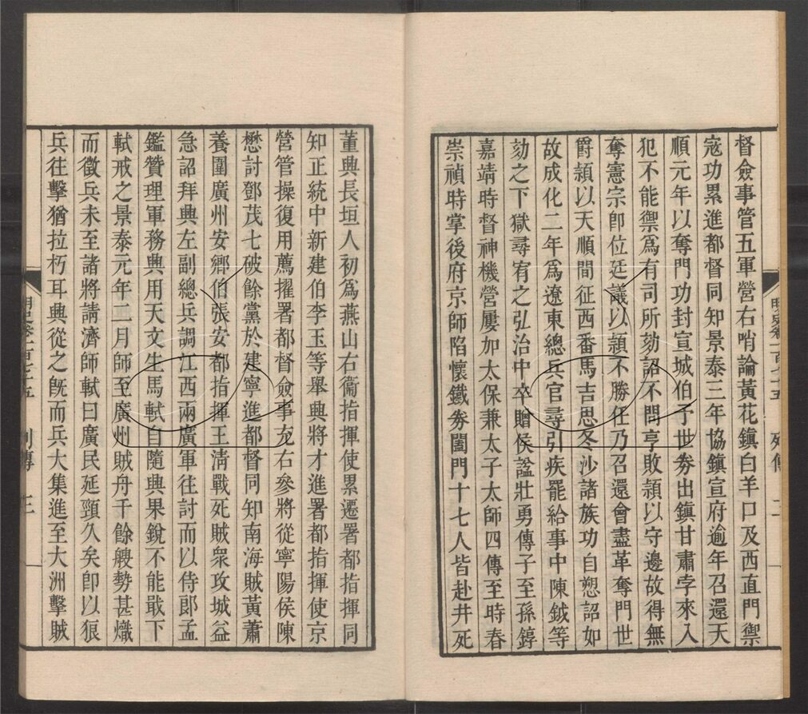 督僉事管五軍營右哨論黃花鎮白羊口及西直門禦
寇功累進都督同知景泰三年協鎮宣府逾年召還天
順元年以奪門功封宣城伯予世券出鎮甘肅孛來入
犯不能禦爲有司所劾詔不問亨敗穎以守邊故得無
奪憲宗卽位廷議以穎不勝任乃召還會盡革奪門世
爵穎以天順間征西番馬吉思冬沙諸族功自愬詔如
故成化二年爲遼東總兵官尋引疾罷給事中陳鉞等
劾之下獄尋宥之弘治中卒贈侯謚壯勇傳子至孫錞
嘉靖時督神機營屢加太保兼太子太師四傳至時春
崇禎時掌後府京師陷懷鐵券闔門十七人皆赴井死
董興長垣人初爲燕山右衞指揮使累遷署都指揮同
知正統中新建伯李玉等舉興將才進署都指揮使京
營管操復用薦擢署都督僉事充右參將從寧陽侯陳
懋討鄧茂七破餘黨於建寧進都督同知南海賊黃蕭
養圍廣州安鄉伯張安都指揮王清戰死賊衆攻城益
急詔拜興左副總兵調江西兩廣軍往討而以侍郎孟
鑑贊理軍務興用天文生馬軾自隨興果銳不能戢下
軾戒之景泰元年二月師至廣州賊舟千餘艘勢甚熾
而徵兵未至諸將請濟師軾曰廣民延頸久矣卽以狼
兵往擊猶拉朽耳興從之旣而兵大集進至大洲擊賊
明史卷一百七十五 列傳